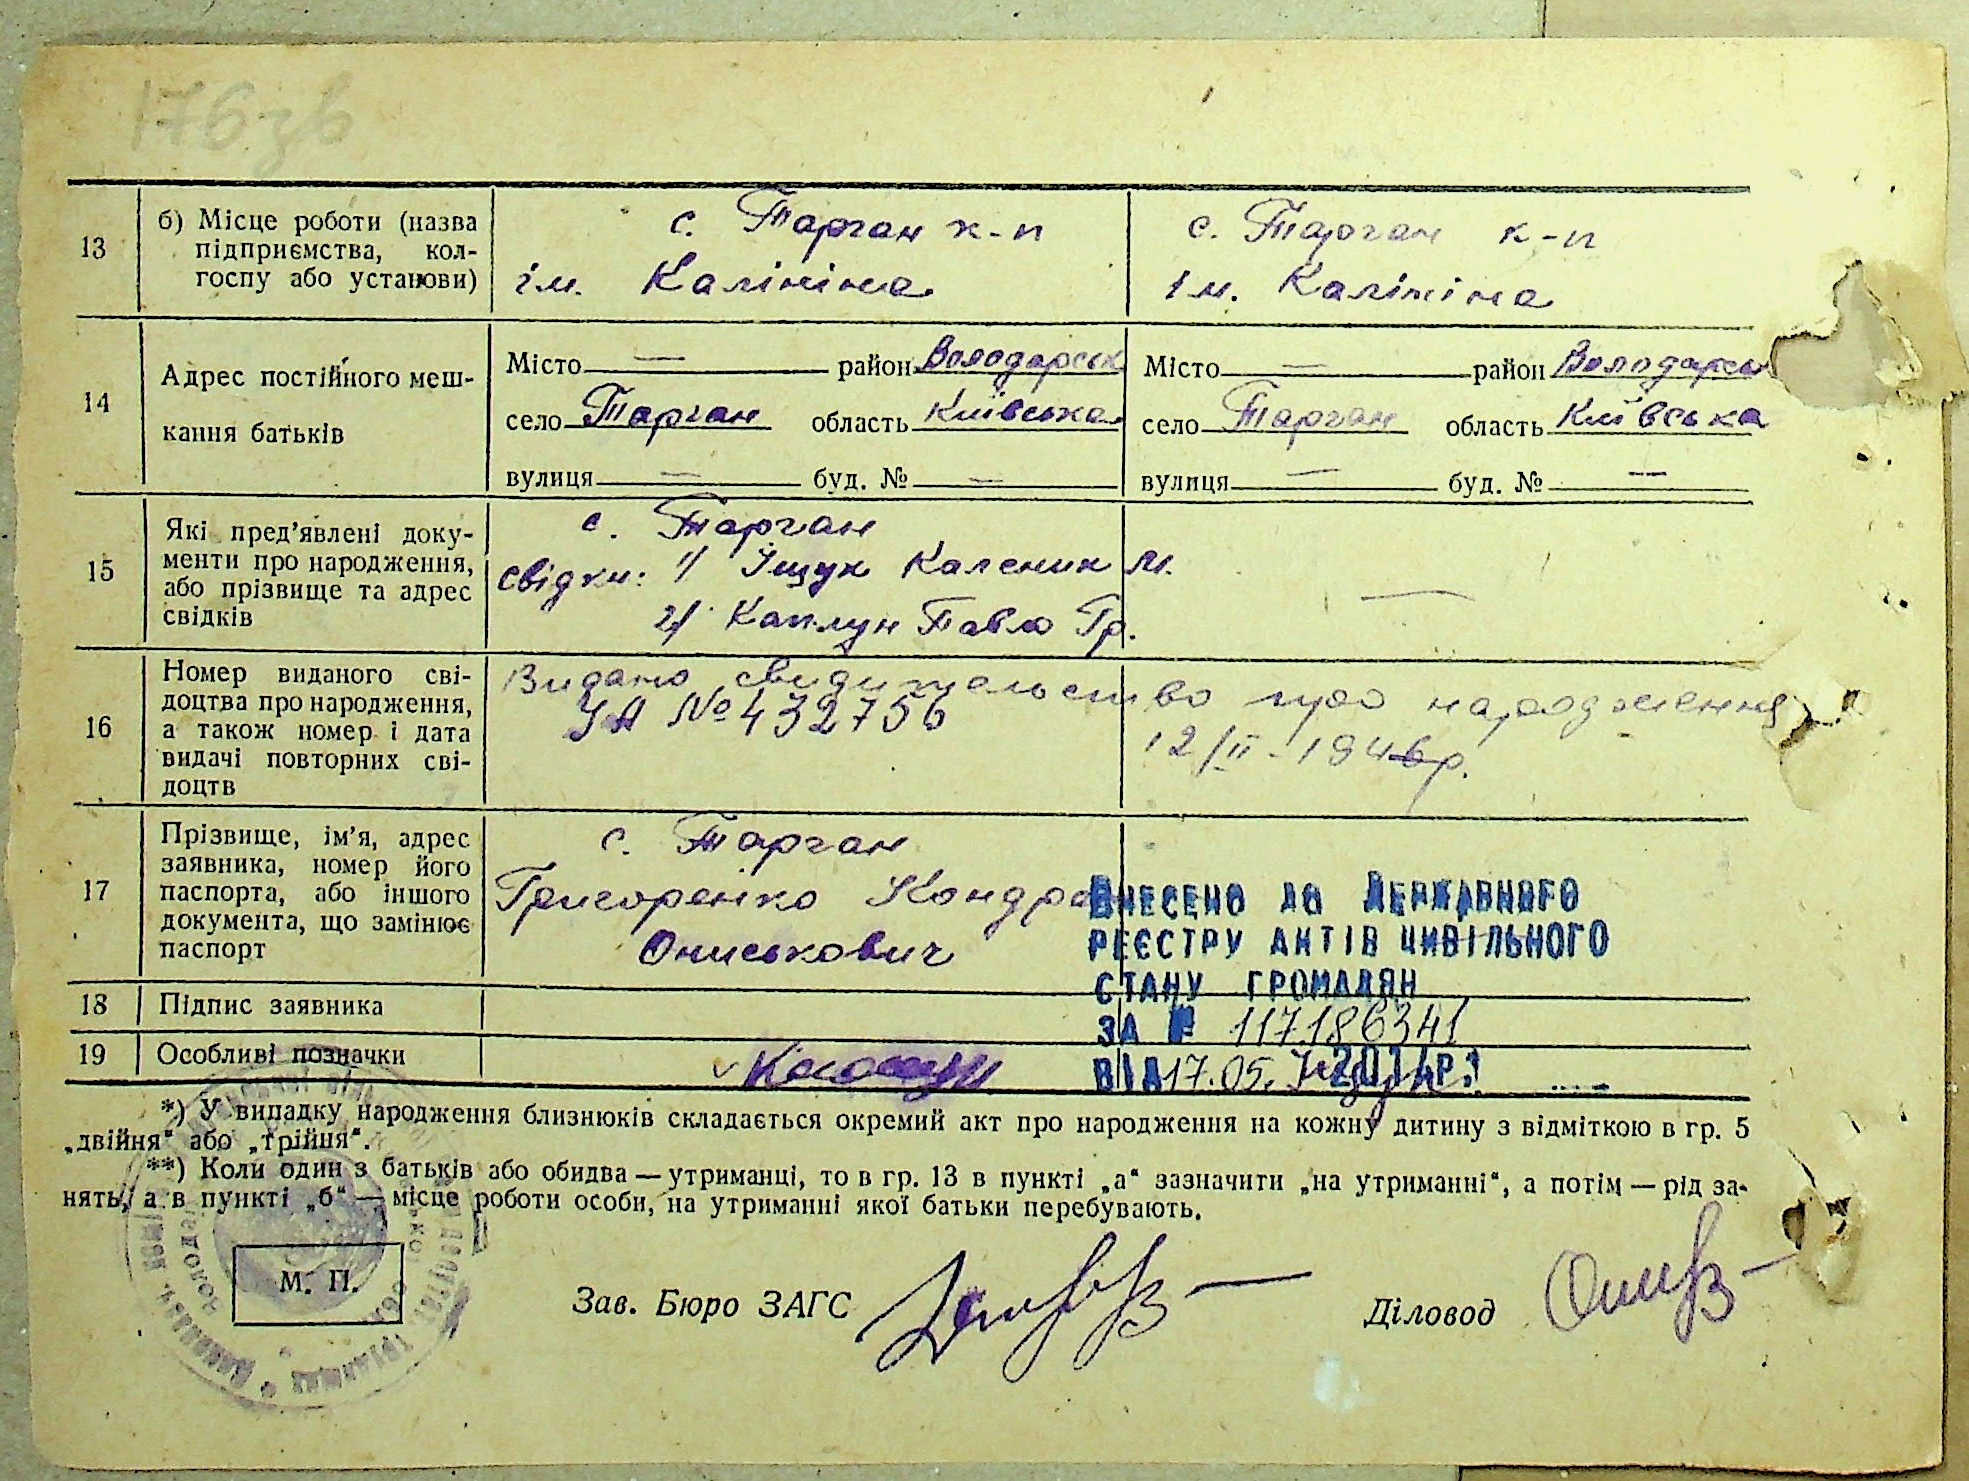 176 зв
13
б) Місце роботи (назва підприємства, колгоспу або установи)
с. Тарган к-п
ім. Калініна
с. Тарган к-п
ім. Калініна
14
Адрес постійного меш-
кання батьків
Місто — район Володарськ
село Тарган область Київська
вулиця — буд. № —
Місто — район Володарськ
село Тарган область Київська
вулиця — буд. № —
15
Які пред'явлені доку-
менти про народження,
або прізвище та адрес
свідків
с. Тарган
свідки: 1/ Іщук Каленик М.
2/ Каплун Павло Гр.
—
16
Номер виданого сві-
доцтва про народження,
а також номер і дата
видачі повторних сві-
доцтв
Видано свидительство про народження
УА № 432756
12/II - 1946р.
17
Прізвище, ім'я, адрес
заявника, номер його
паспорта, або іншого
документа, що замінює
паспорт
с. Тарган
Григоренко Кондра
Ониськович
ВНЕСЕНО ДО ДЕРЖАВНОГО
РЕЄСТРУ АКТІВ ЦИВІЛЬНОГО
СТАНУ ГРОМАДЯН
ЗА № 117186341
ВІД 17.05. 2014Р.
18
Підпис заявника
19
Особливі позначки
*) У випадку народження близнюків складається окремий акт про народження на кожну дитину з відміткою в гр. 5
„двійня“ або „трійня“.
**) Коли один з батьків або обидва — утриманці, то в гр. 13 в пункті „а“ зазначити „на утриманні“, а потім — рід за-
нять, а в пункті „б“ — місце роботи особи, на утриманні якої батьки перебувають.
М. П.
Зав. Бюро ЗАГС
Діловод